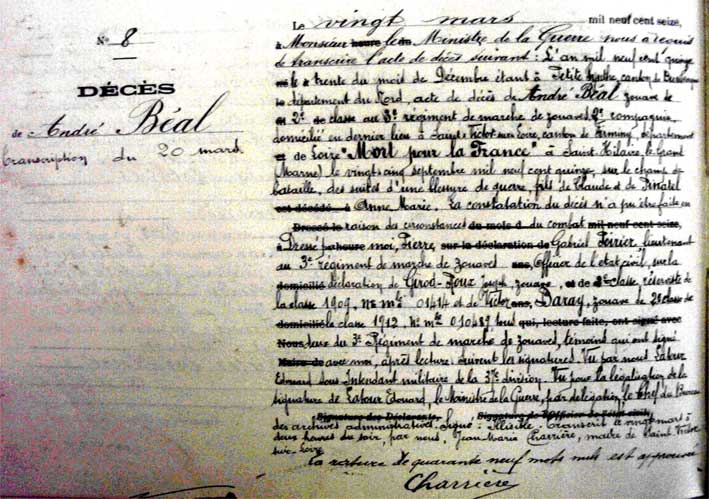 N° 8
DÉCÈS
de André Béal
transcription du 20 mars
Le vingt mars mil neuf cent seize,
à Monsieur heure le du Ministre de la Guerre nous a requis
de transcrire l'acte de décès suivant : L'an mil neuf cent quinze
le trente du mois de Décembre étant à Petite Synthe, canton de
département du Nord, acte de décès de André Béal, zouave de
2e de classe au 3e régiment de marche de zouaves, 2e compagnie
domicilié en dernier lieu à Saint Victor sur Loire, canton de Firminy, département
de Loire "Mort pour la France" à Saint-Hilaire-le-Grand
Marne) le vingt cinq septembre mil neuf cent quinze, sur le champ de
bataille, des suites d'une blessure de guerre, fils de Claude et de Pinatel
est décédé à Anne Marie. La constatation du décès n'a pu être faite en
Dressé le raison des circonstances du mois d du combat mil neuf cent seize,
à Dressé par heure moi, Pierre, sur la déclaration de Gabriel Périer, lieutenant
au 3e régiment de marche de zouaves ans, Officier de l'état civil, sur la
domicilié déclaration de Girod-Roux Joseph, zouave, et de 2e classe, réserviste de
la classe 1909, No mle 01414 et de Victor ans, Daray, zouave de 2e classe de
domicilié le classe 1912, No mle 010487 tous qui, lecture faite, ont signé avec
Nous deux du 3e Régiment de marche de zouaves, témoins qui ont signé
Maire de avec moi, après lecture. Suivent les signatures. Vu par nous Latour
Edouard Sous Intendant militaire de la 37e division. Vu pour la légalisation de la
signature de Latour Edouard, le Ministre de la Guerre, par délégation, le Chef du Bureau
Signature des Déclarants, Signature de l'Officier de l'état civil,
des archives administratives. Signé : Transcrit le vingt mars à
deux heures du soir, par nous, Jean-Marie Charrière, maire de Saint Victor
sur-Loire
la rature de quarante neuf mots nuls est approuvée
Charrière